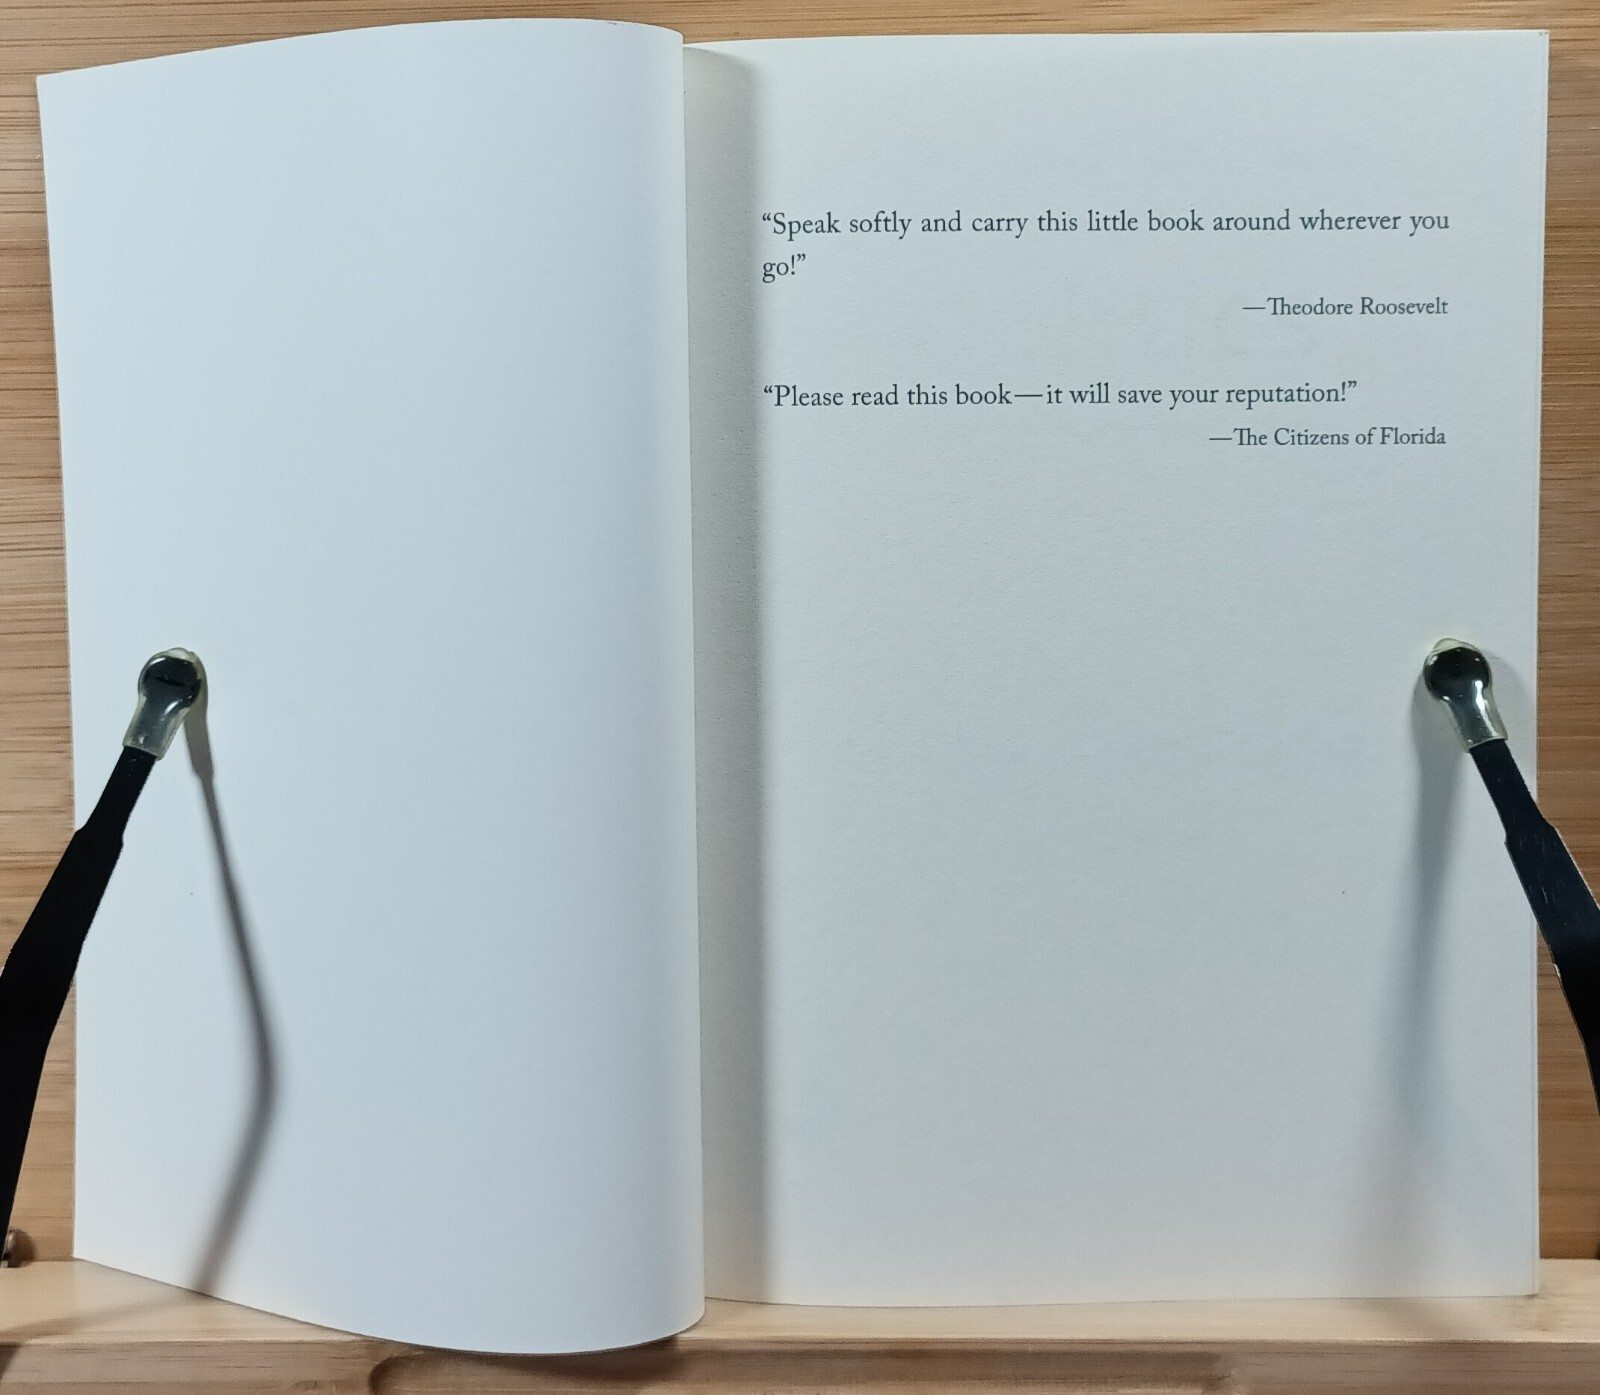 “Speak softly and carry this little book around wherever you
go!”
—Theodore Roosevelt
“Please read this book—it will save your reputation!”
—The Citizens of Florida